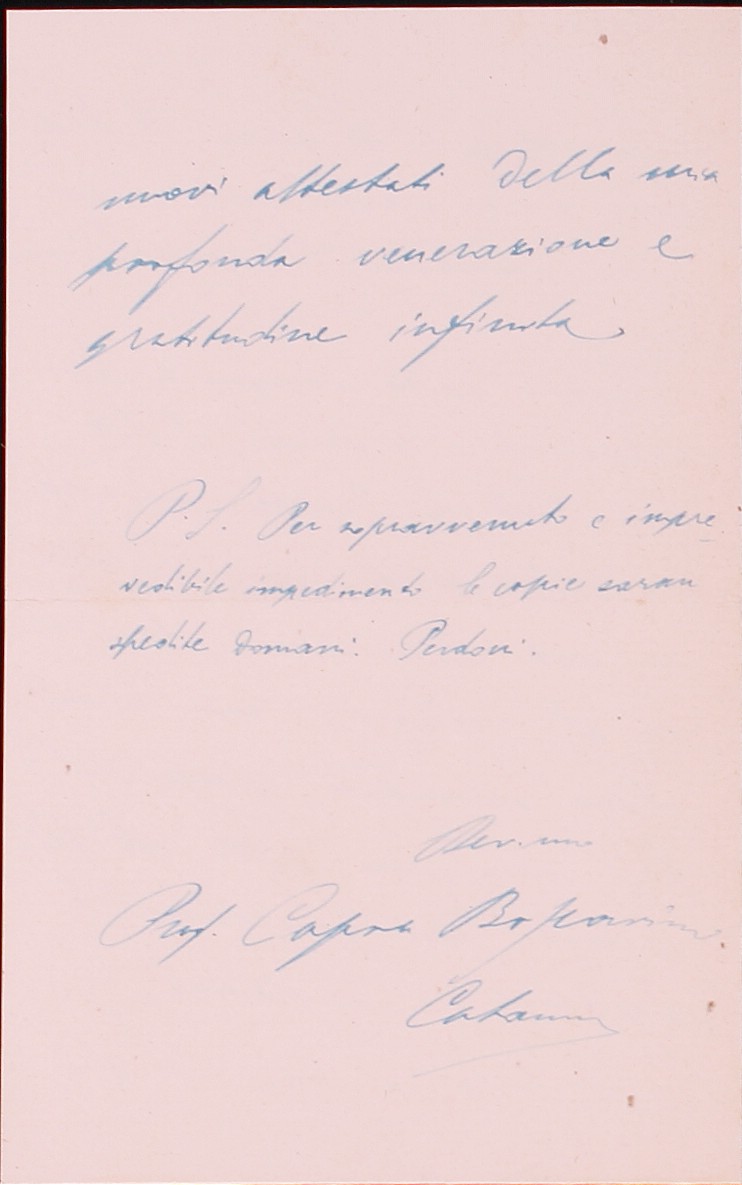 nuovi attestati della mia
profonda venerazione e
gratitudine infinita.
P.S. Per sopravvenuto e impre
vedibile impedimento le copie saran
spedite domani. Perdoni.
Dev.mo
Prof. Capra
Catania